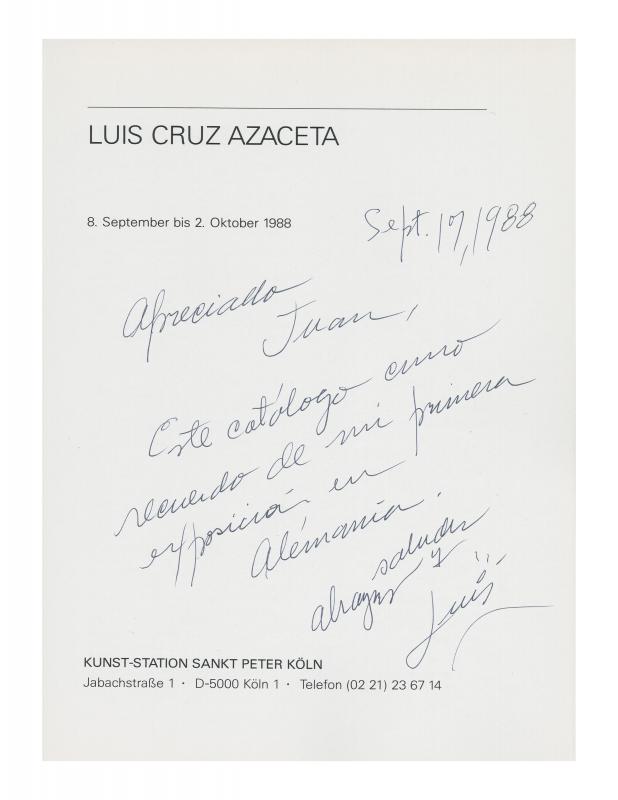 LUIS CRUZ AZACETA
8. September bis 2. Oktober 1988
Sept. 17, 1988
Apreciado
Juan,
Este catálogo como
recuerdo de mi primera
exposición en
Alémania.
saludos
y
abrazos
Luis
KUNST-STATION SANKT PETER KÖLN
Jabachstraße 1 · D-5000 Köln 1 · Telefon (02 21) 23 67 14